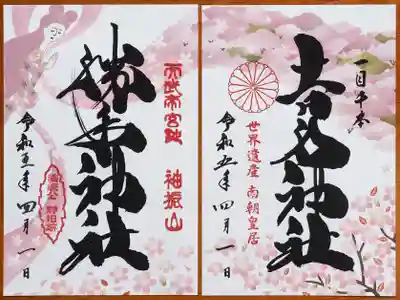 一目千本
吉水神社
世界遺産 南朝皇居
令和五年 四月 一日
天武帝宮趾 袖振山
勝手神社
令和五年 四月 一日